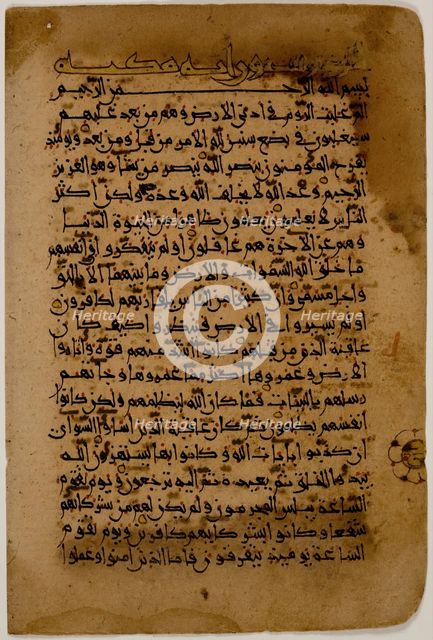 مكيه
بسم الله الرحمن الرحيم
الم غلبت الروم في ادنى الارض وهم من بعد غلبهم
سيغلبون في بضع سنين لله الامر من قبل ومن بعد ويومئذ
يفرح المومنون بنصر الله ينصر من يشا وهو العزيز
الرحيم وعد الله لا يخلف الله وعده ولكن اكثر
الناس لا يعلمون يعلمون ظاهرا من الحيوة الدنيا
وهم عن الاخرة هم غافلون اولم يتفكروا في انفسهم
ما خلق الله السموات والارض وما بينهما الا بالحق
واجل مسمى وان كثيرا من الناس بلقاء ربهم لكافرون
اولم يسيروا في الارض فينظروا كيف كان
عاقبة الذين من قبلهم كانوا اشد منهم قوة واثاروا
الارض وعمروها اكثر مما عمروها وجاتهم
رسلهم بالبينات فما كان الله ليظلمهم ولكن كانوا
انفسهم يظلمون ثم كان عاقبة الذين اساوا السواى
ان كذبوا بايات الله وكانوا بها يستهزون الله
يبدوا الخلق ثم يعيده ثم اليه ترجعون ويوم تقوم
الساعة يبلس المجرمون ولم يكن لهم من شركائهم
شفعوا وكانوا بشركائهم كافرين ويوم تقوم
الساعة يومئذ يتفرقون فاما الذين امنوا وعملوا